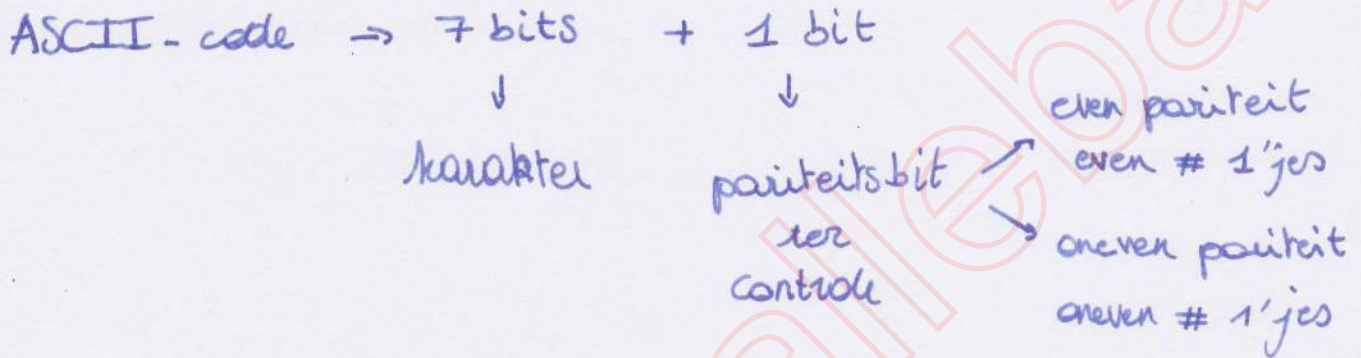 ASCII-code → 7 bits + 1 bit
↓ ↓
karakter
pariteitsbit
ter
controle
even pariteit
even # 1'jes
oneven pariteit
oneven # 1'jes